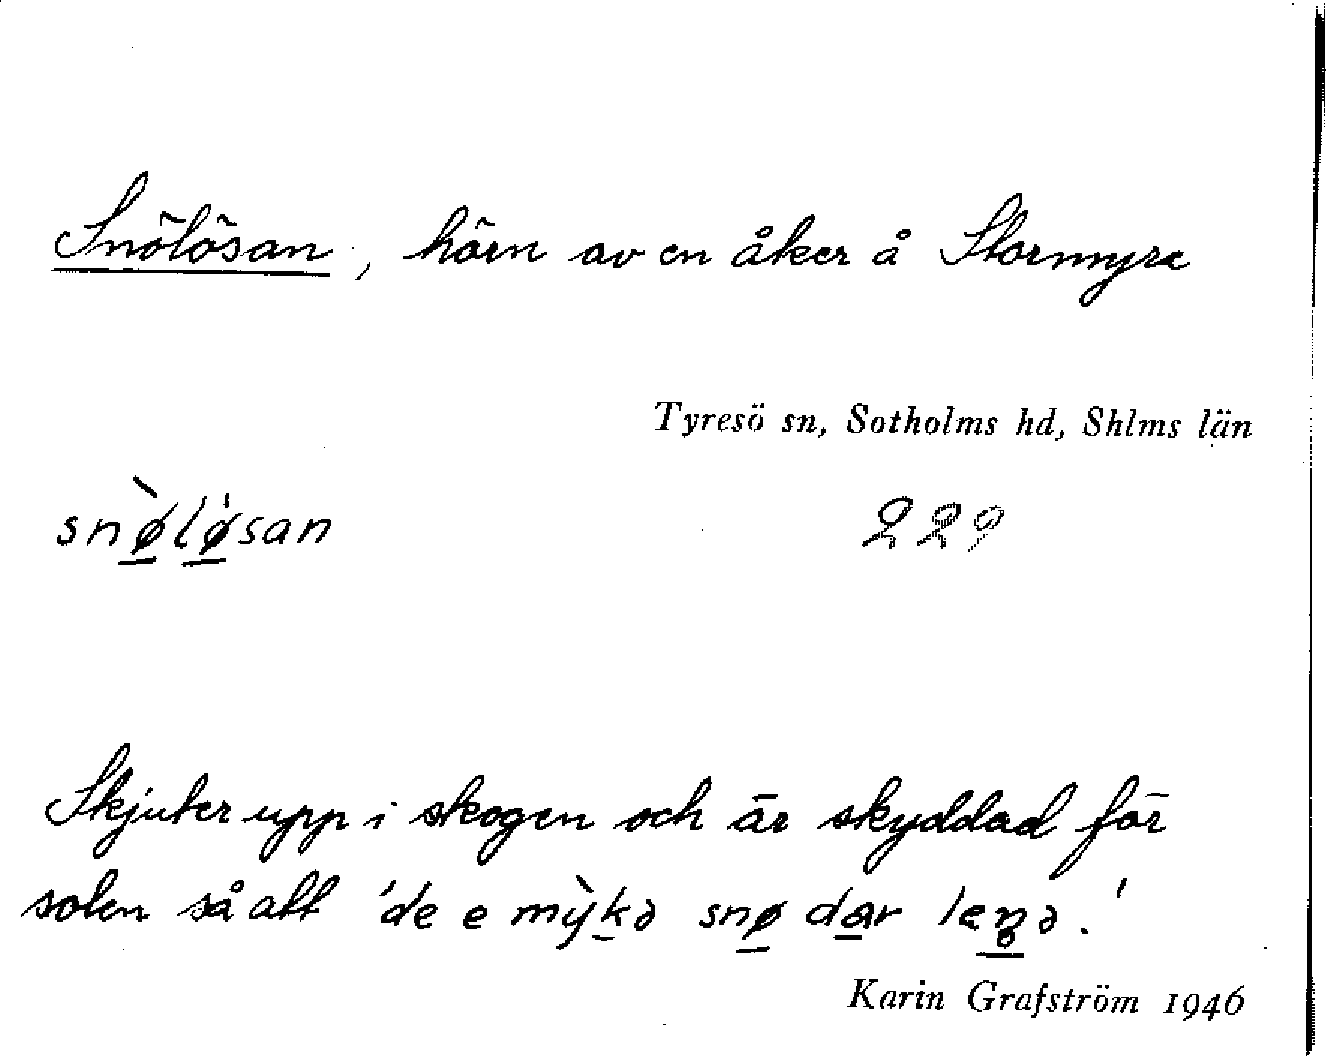 Snölösan, hörn av en åker å Stormyra
Tyresö sn, Sotholms hd, Shlms län
snø̀lø̍san 229
Skjuter upp i skogen och är skyddad för
solen så att 'de e mỳkə snø dar leŋə.'
Karin Grafström 1946